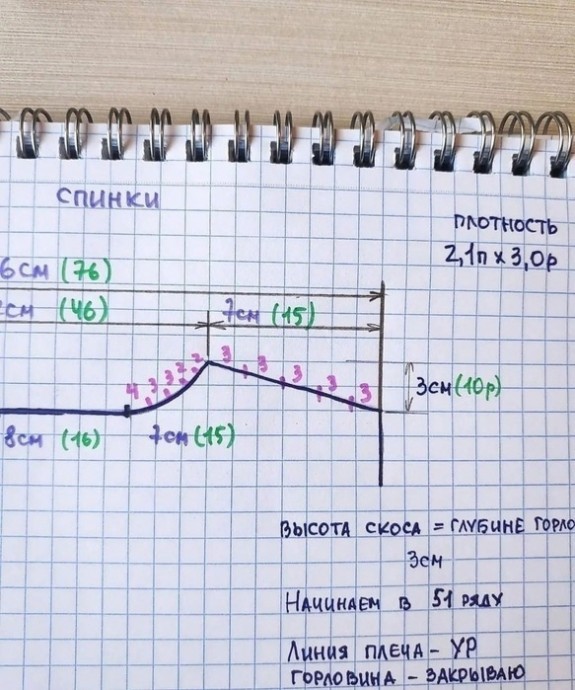 СПИНКИ
ПЛОТНОСТЬ
2,1п х 3,0р
6см (76)
см (46)
7см (15)
4 3 3 2 2 3 3 3 3 3
3см (10р)
8см (16)
7см (15)
ВЫСОТА СКОСА = ГЛУБИНЕ ГОРЛО
3см
НАЧИНАЕМ В 51 РЯДУ
ЛИНИЯ ПЛЕЧА - УР
ГОРЛОВИНА - ЗАКРЫВАЮ